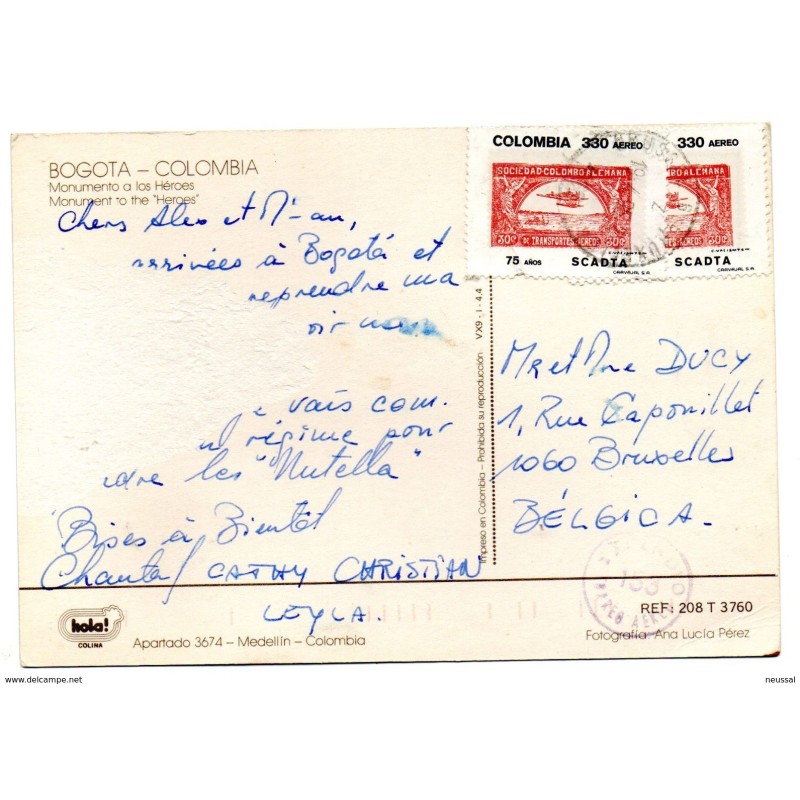 BOGOTA – COLOMBIA
Monumento a los Héroes
Monument to the "Heroes"
Chers Alex et
arrivées à Bogotá et
reprendre ma
vais com.
régime pour
les "Nutella"
Bises à Bientôt
Chantal CATHY CHRISTIAN
LEYLA.
hola!
COLINA
Apartado 3674 – Medellín – Colombia
Impreso en Colombia – Prohibida su reproducción VX9 - I - 4.4
COLOMBIA 330 AEREO
SOCIEDAD·COLOMBO·ALEMANA
30c DE TRANSPORTES·AEREOS 30c
75 AÑOS SCADTA
CARVAJAL S.A.
330 AEREO
ALEMANA
30c
SCADTA
CARVAJAL S.A.
Mr et Mme DUCY
1, Rue Capouillet
1060 Bruxelles
BÉLGICA.
153
REF: 208 T 3760
Fotografía: Ana Lucía Pérez
www.delcampe.net
neussal